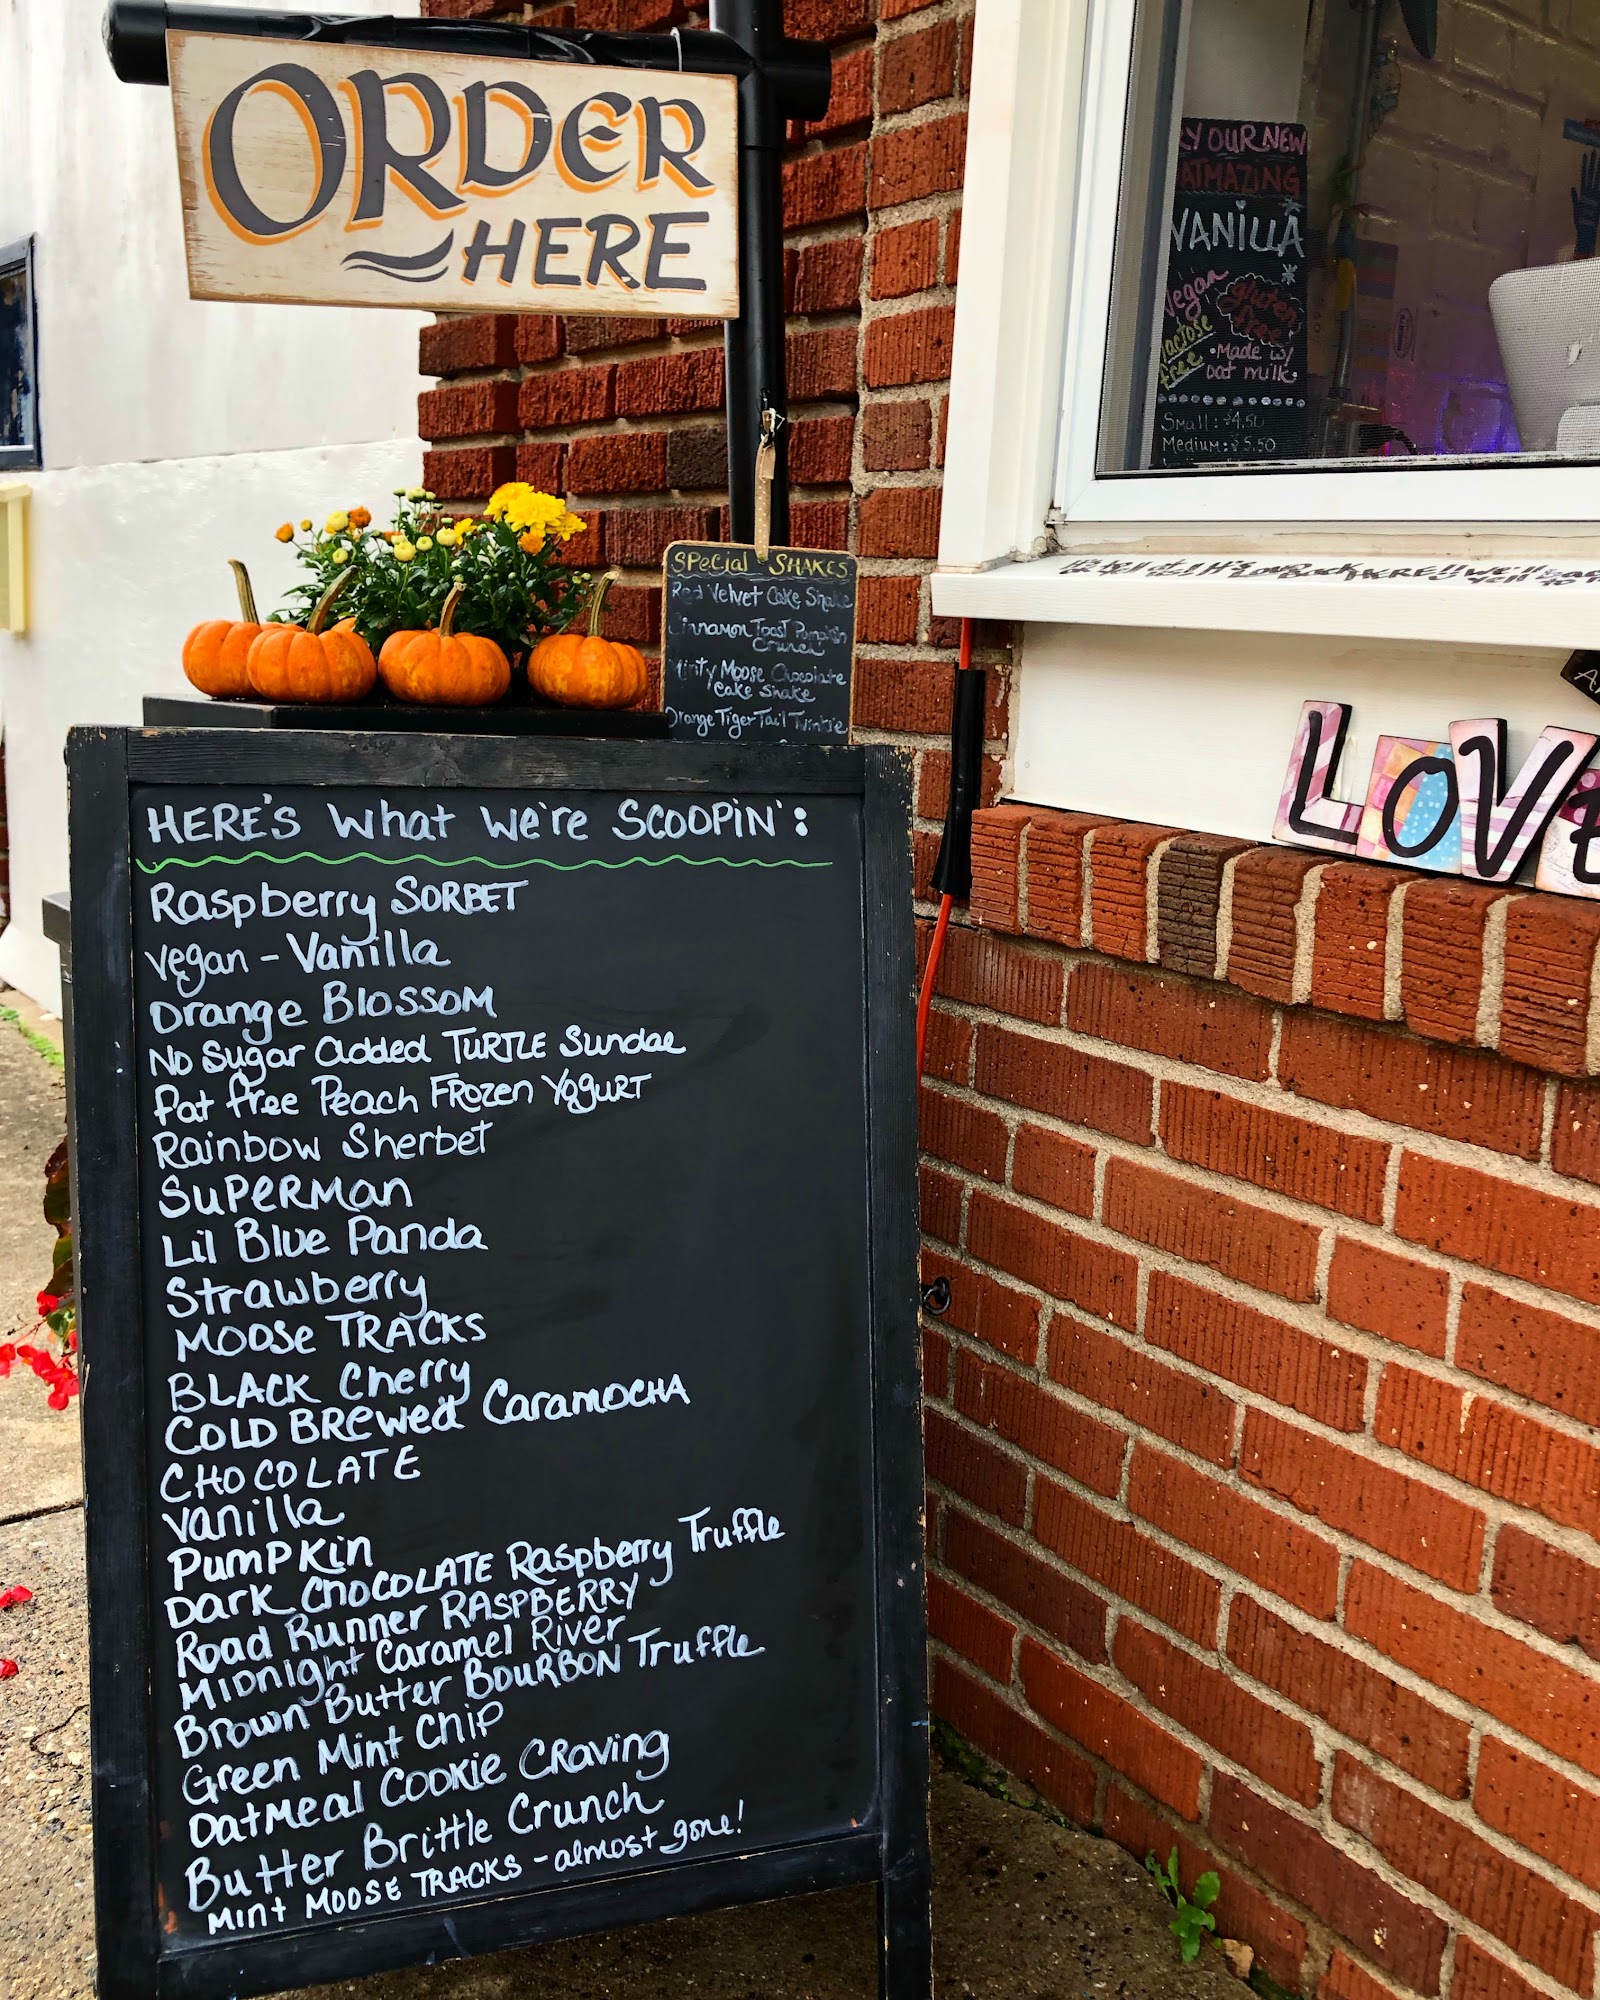 ORDER
HERE
RY OUR NEW
OATMAZING
VANILLA
Vegan
gluten
free
lactose
free
• Made w/
oat milk.
Small: $4.50
Medium: $5.50
SPecial SHAKES
Red Velvet Cake Shake
Cinnamon Toast Pumpkin
Crunch
Minty Moose Chocolate
Cake Shake
Orange Tiger Tail Twinkie
LOVE
HERE'S What We're SCOOPiN':
Raspberry SORBET
Vegan - Vanilla
Orange BLOSSOM
No Sugar added TURTLE Sundae
Fat free Peach FROZEN YOGURT
Rainbow Sherbet
SuPERMan
Lil Blue Panda
Strawberry
MOOSe TRACKS
BLACK Cherry
COLD BREWed CaraMOCHA
CHOCOLATE
Vanilla
PumPKin
DARK CHOCOLATE Raspberry Truffle
Road Runner RASPBERRY
MIDNight Caramel River
Brown Butter BOURBON Truffle
Green Mint Chip
OatMeal COOKIE CRaving
Butter Brittle Crunch
Mint MOOSE TRACKS - almost gone!